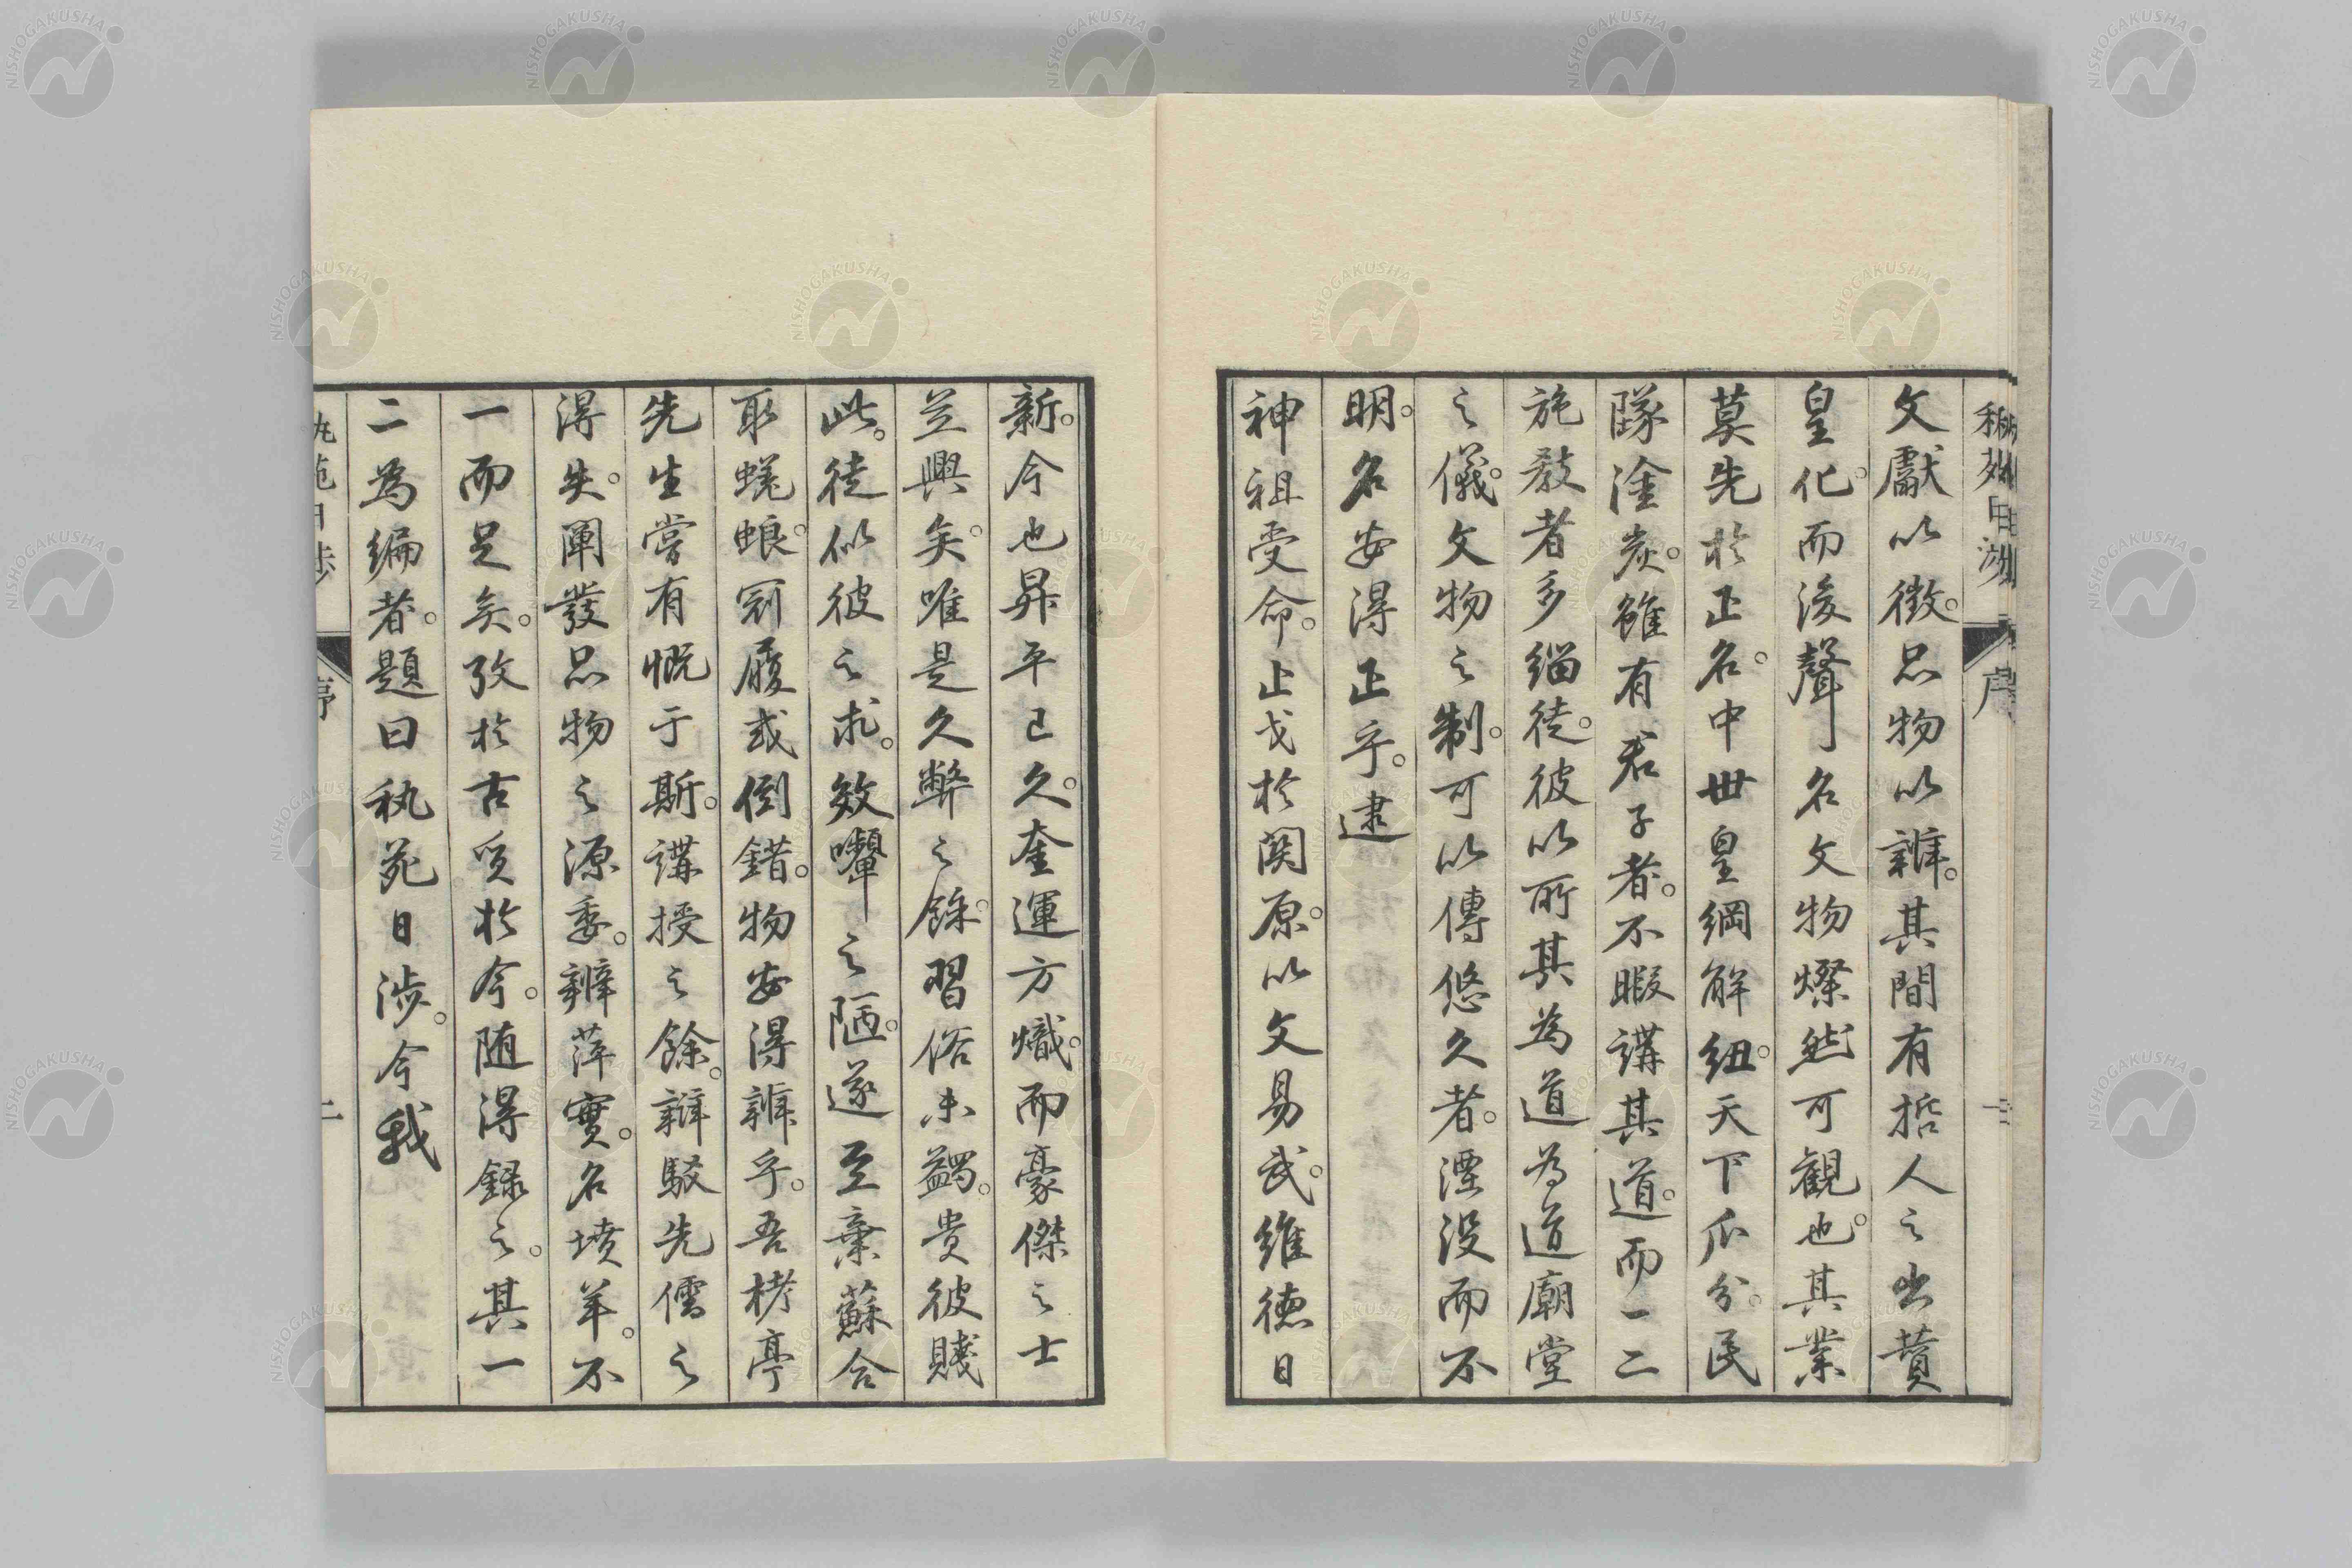 文獻以徵。品物以辨。其間有哲人之出賛
皇化。而後聲名文物燦然可觀也。其業
莫先於正名。中世皇綱解紐。天下瓜分。民
隊塗炭。雖有君子者。不暇講其道。而一二
施教者多緇徒。彼以所其為道為道廟堂
之儀。文物之制。可以傳悠久者。湮没而不
明。名安得正乎。逮
神祖受命。止戈於関原。以文易武。維徳日
新。今也昇平已久。奎運方熾。而豪傑之士
並興矣。唯是久弊之餘。習俗未蠲。貴彼賤
此。徒似彼之求。效嚬之陋。遂至棄蘇合
取蜣蜋。冠履或倒錯。物安得辨乎。吾栲亭
先生嘗有慨于斯。講授之餘。辯駁先儒之
得失。闡發品物之源委。辨萍實。名墳羊。不
一而足矣。攷於古質於今。随得録之。其一
二為編者。題曰秇苑日渉。今我
秇苑日渉
序
二
NISHOGAKUSHA